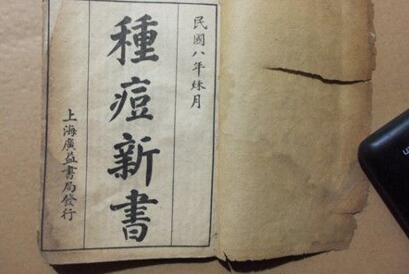 民國八年㛃月
種痘新書
上海廣益書局發行